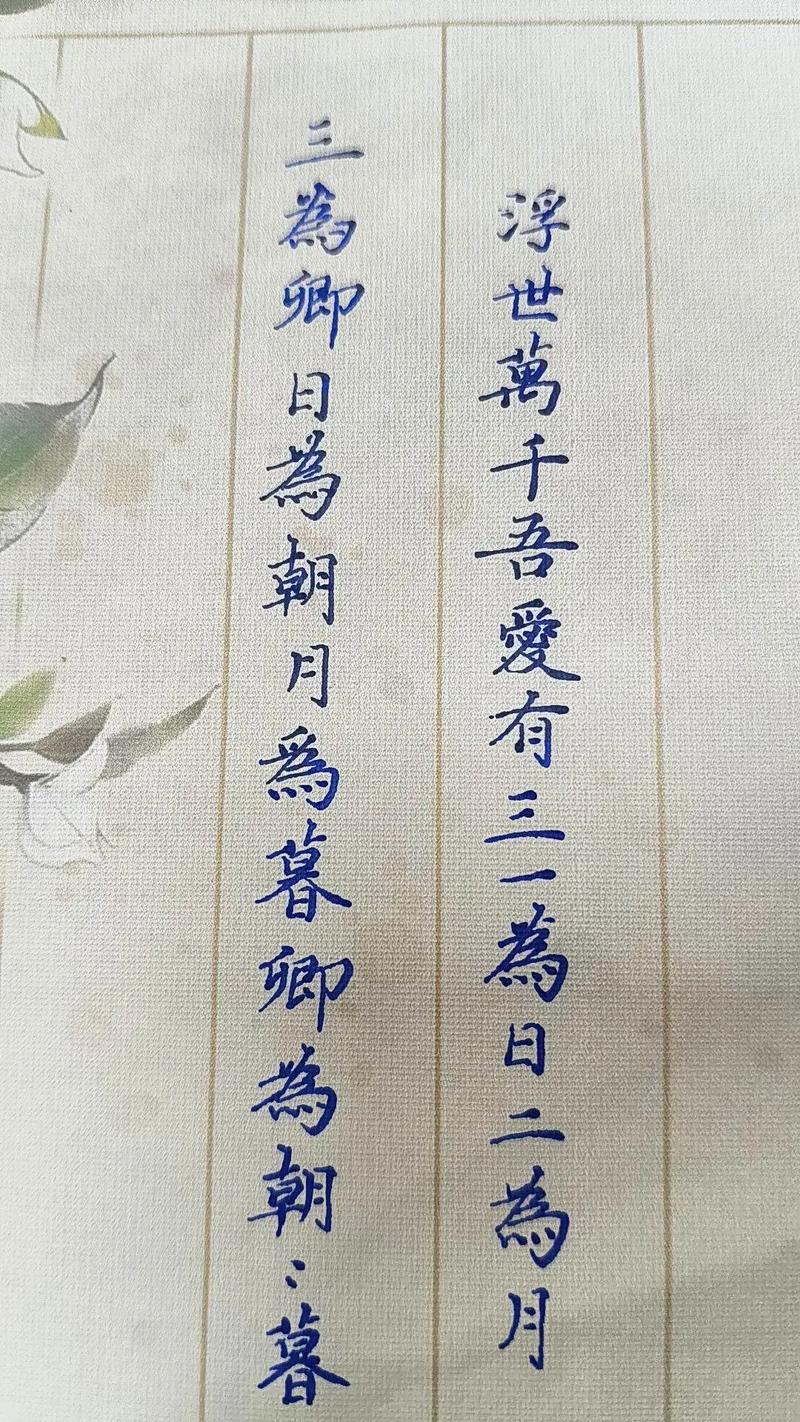 浮世萬千吾愛有三一為日二為月
三為卿日為朝月爲暮卿為朝〻暮